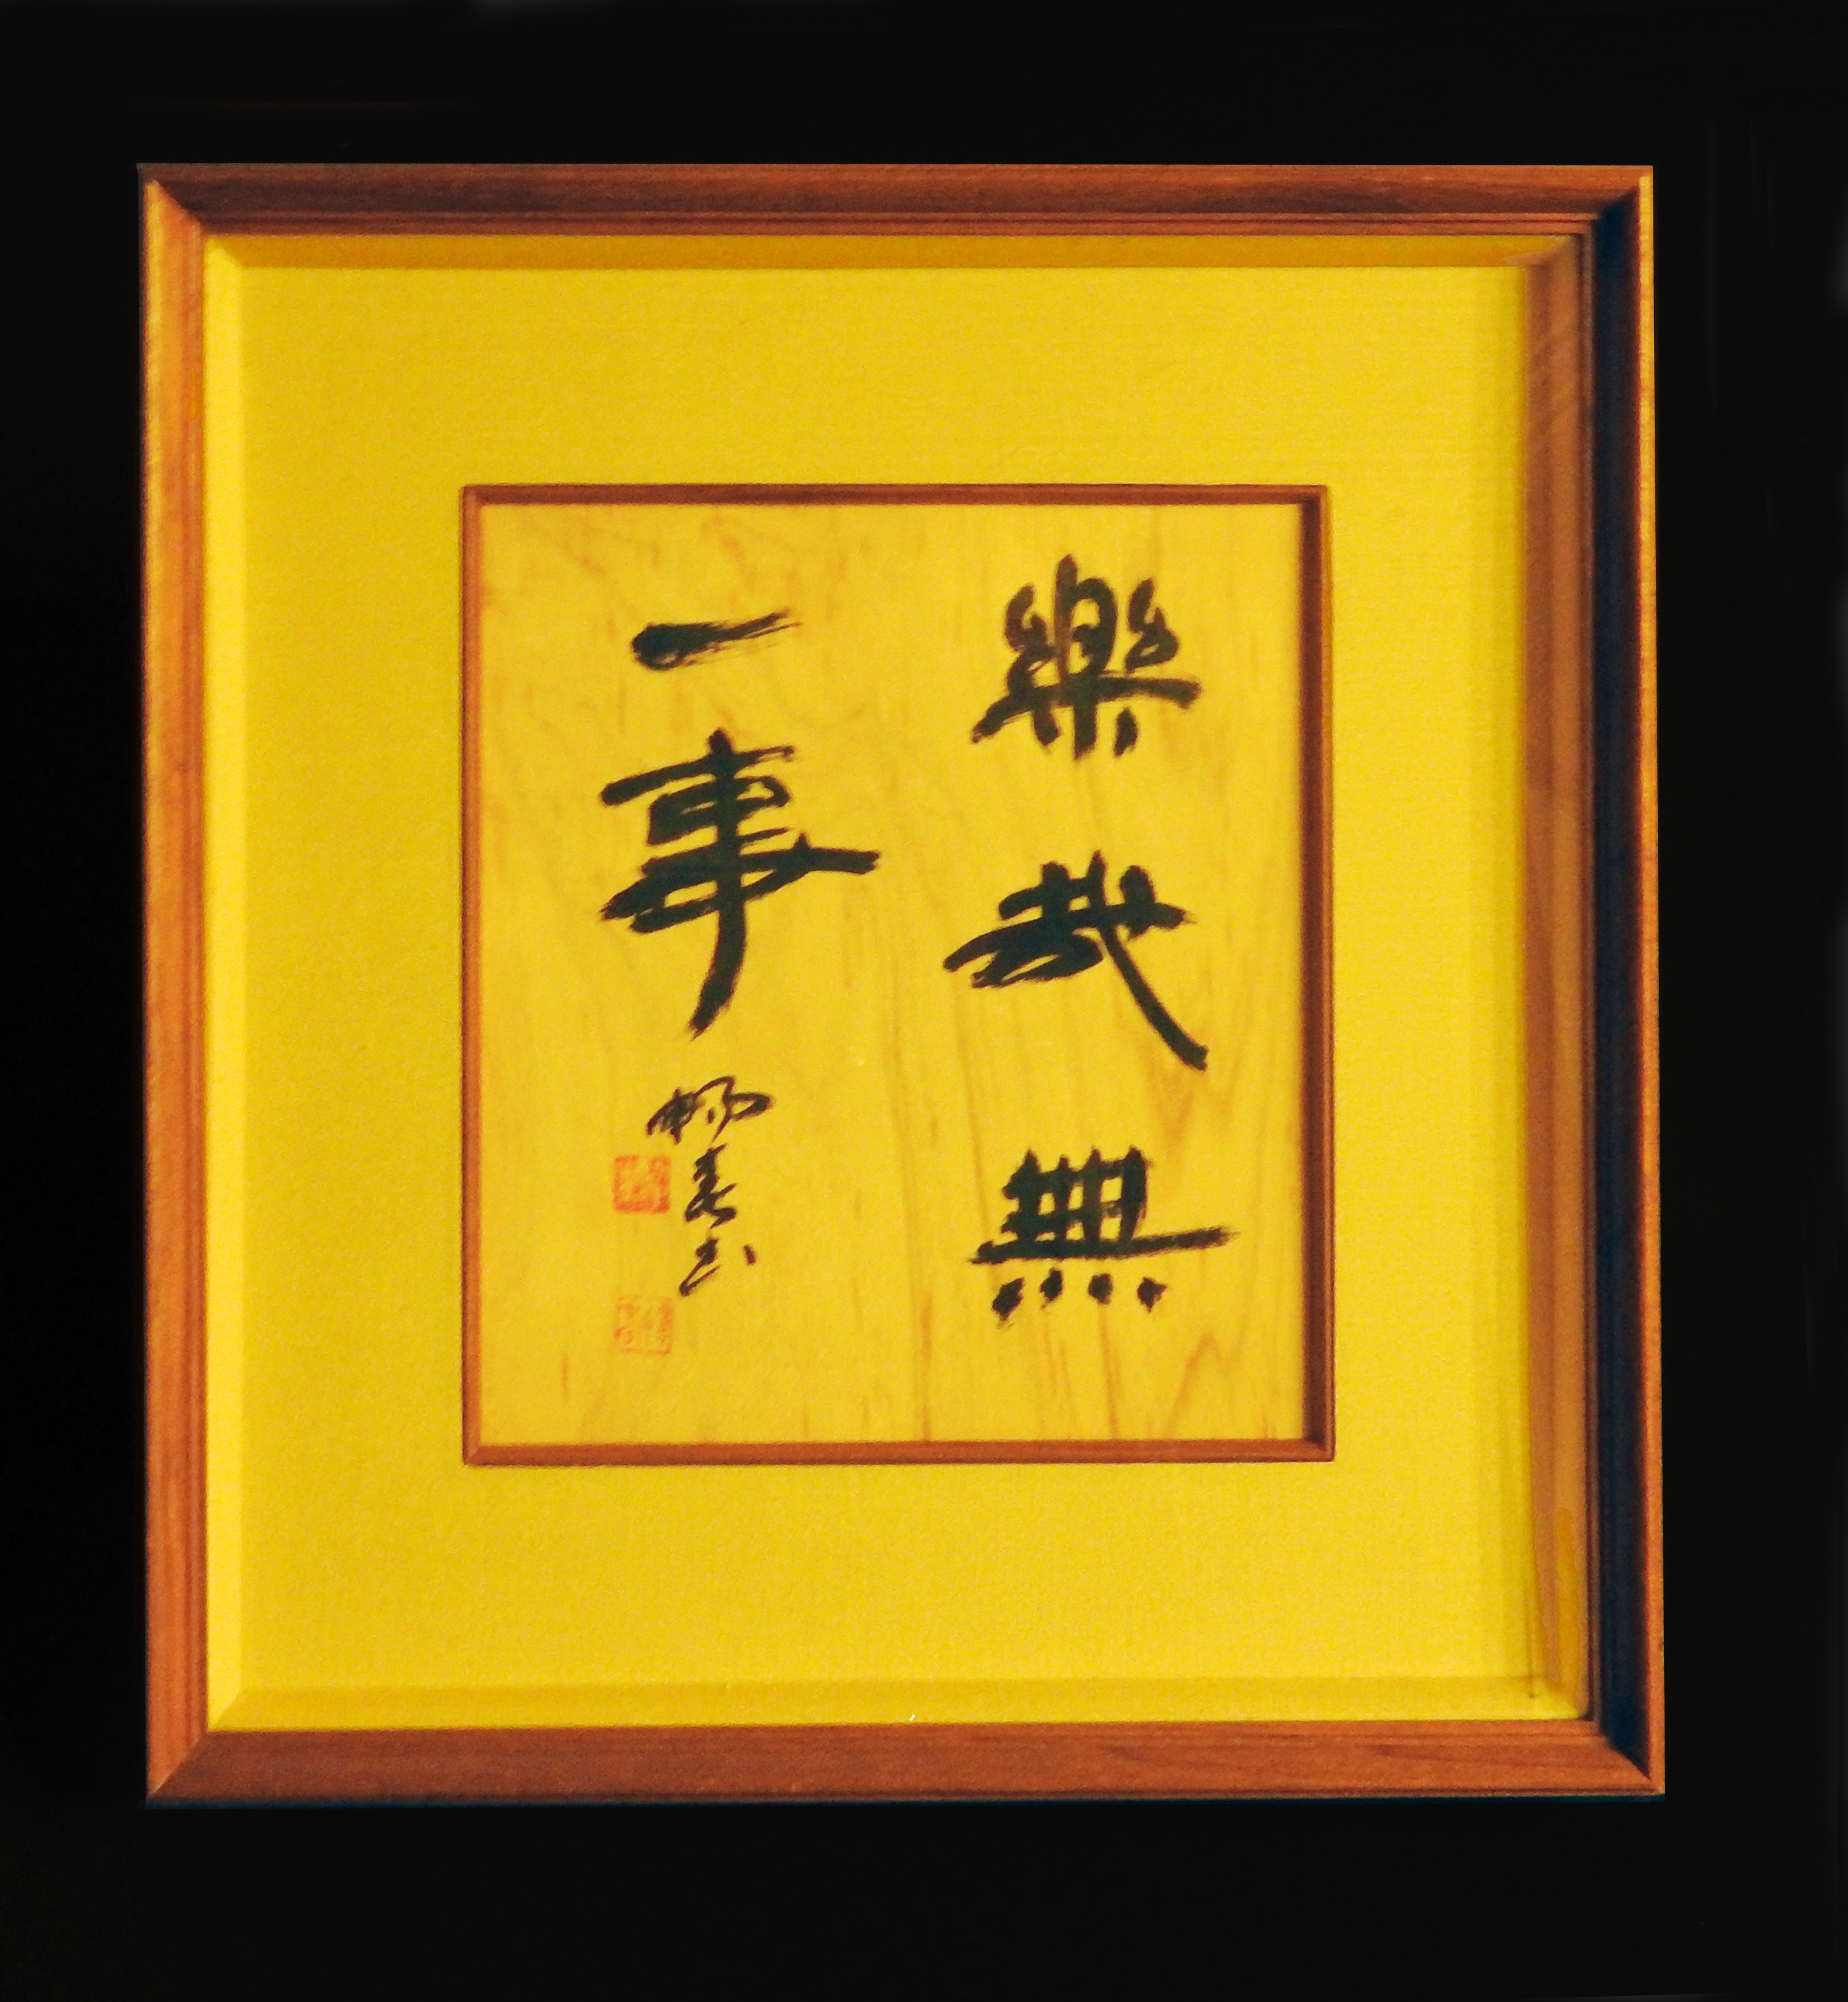 樂哉無
一事